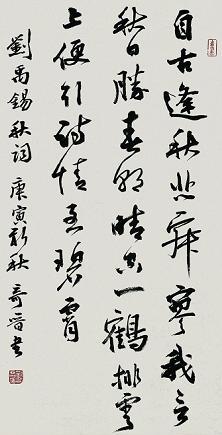 自古逢秋悲寂寥我言
秋日勝春朝晴空一鶴排雲
上便引詩情至碧霄
劉禹錫秋詞 庚寅新秋 奇晋书